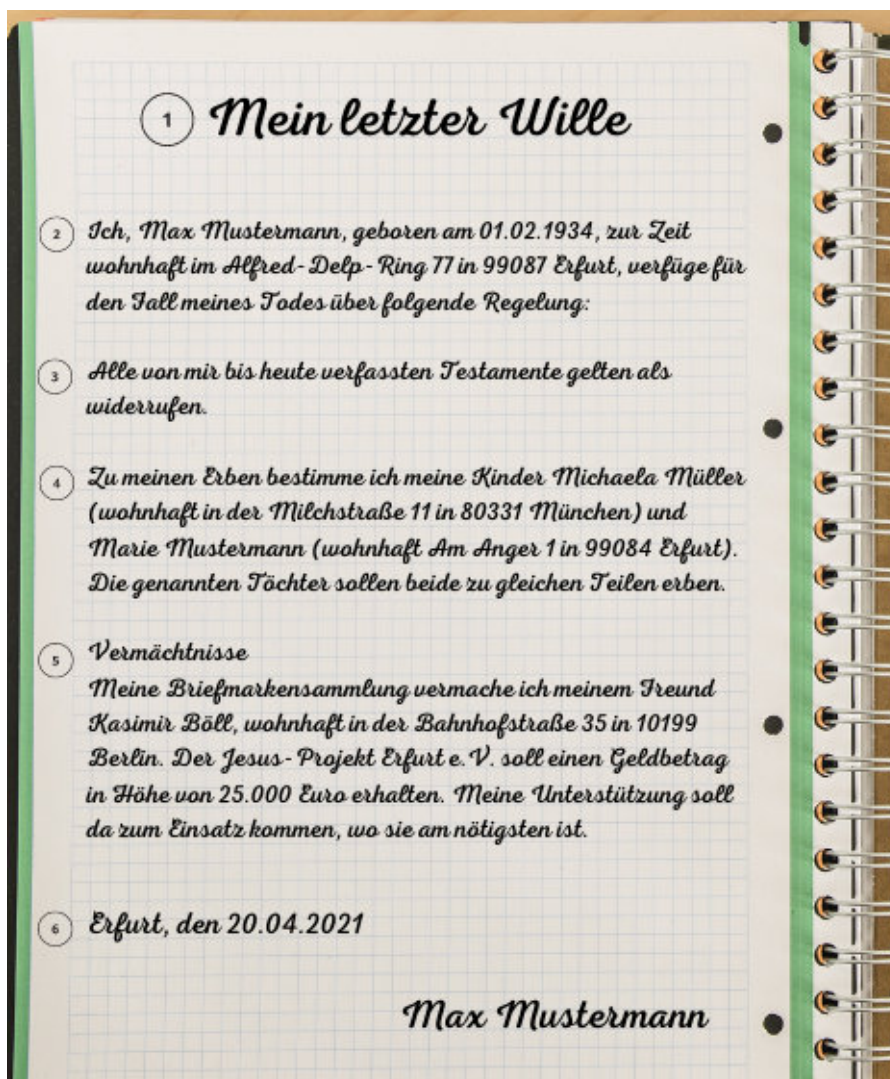 1 Mein letzter Wille
2 Ich, Max Mustermann, geboren am 01.02.1934, zur Zeit
wohnhaft im Alfred-Delp-Ring 77 in 99087 Erfurt, verfüge für
den Fall meines Todes über folgende Regelung:
3 Alle von mir bis heute verfassten Testamente gelten als
widerrufen.
4 Zu meinen Erben bestimme ich meine Kinder Michaela Müller
(wohnhaft in der Milchstraße 11 in 80331 München) und
Marie Mustermann (wohnhaft Am Anger 1 in 99084 Erfurt).
Die genannten Töchter sollen beide zu gleichen Teilen erben.
5 Vermächtnisse
Meine Briefmarkensammlung vermache ich meinem Freund
Kasimir Böll, wohnhaft in der Bahnhofstraße 35 in 10199
Berlin. Der Jesus-Projekt Erfurt e.V. soll einen Geldbetrag
in Höhe von 25.000 Euro erhalten. Meine Unterstützung soll
da zum Einsatz kommen, wo sie am nötigsten ist.
6 Erfurt, den 20.04.2021
Max Mustermann